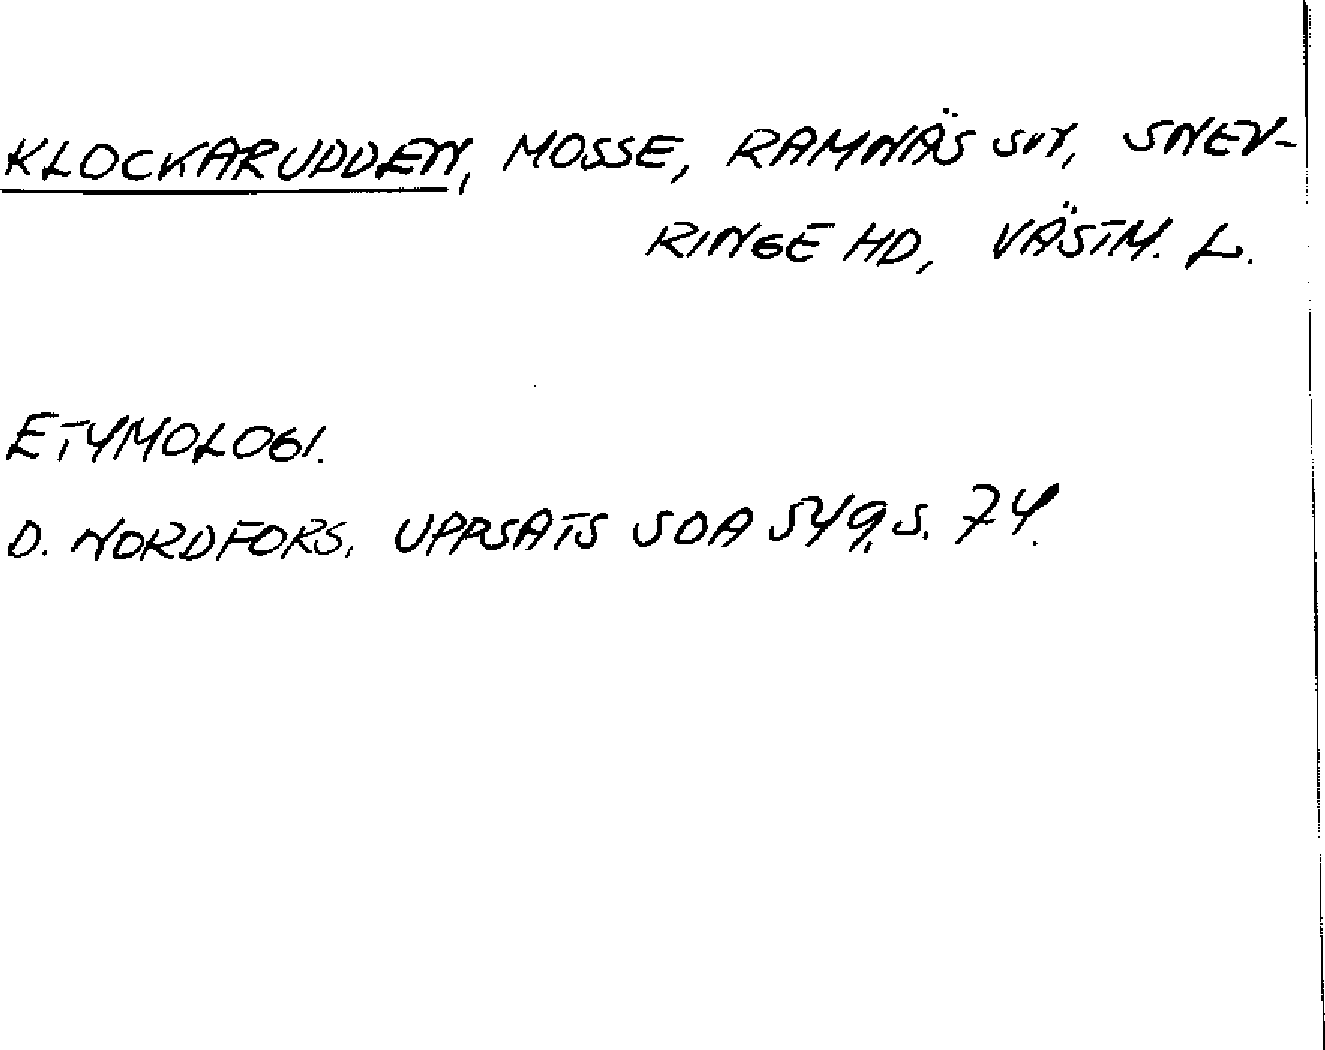 KLOCKARUDDEN, MOSSE, RAMNÄS SN, SNEV-
RINGE HD, VÄSTM. L.
ETYMOLOGI.
D. NORDFORS. UPPSATS SOA 549, S. 74.